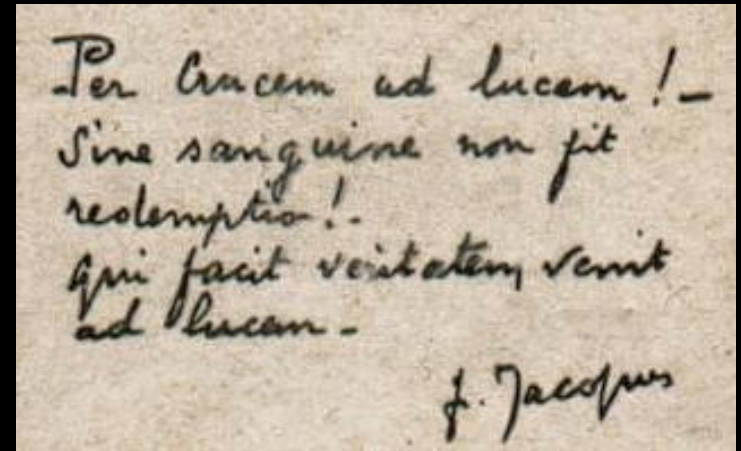 Per Crucem ad lucem ! -
Sine sanguine non fit
redemptio ! -
Qui facit veritatem, venit
ad lucem -
f. Jacques